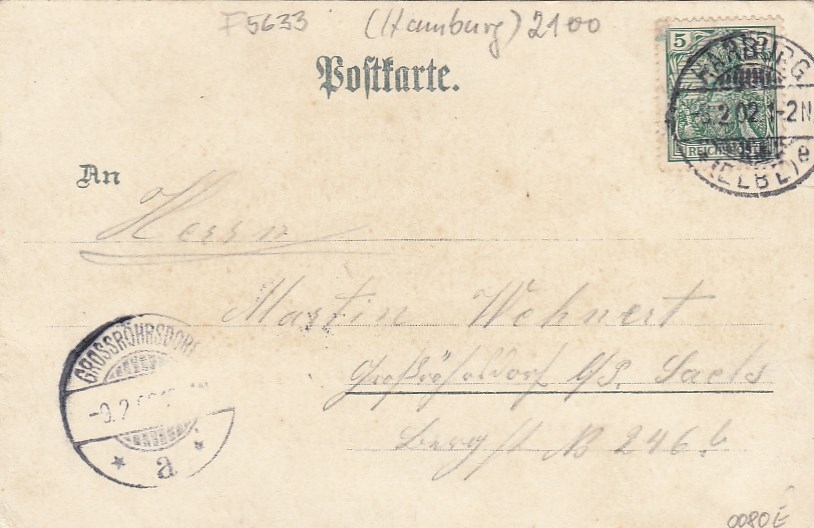 F5633 (Hamburg) 2100
Postkarte.
5 5
REICHSPOST
HARBURG
2.02.1-2N
(ELBE) e
An
Herrn
Martin Wehnert
Großröhrsdorf b/P. Sachs
No 246 b
GROSSRÖHRSDORF
-9.2
* a *
0080E